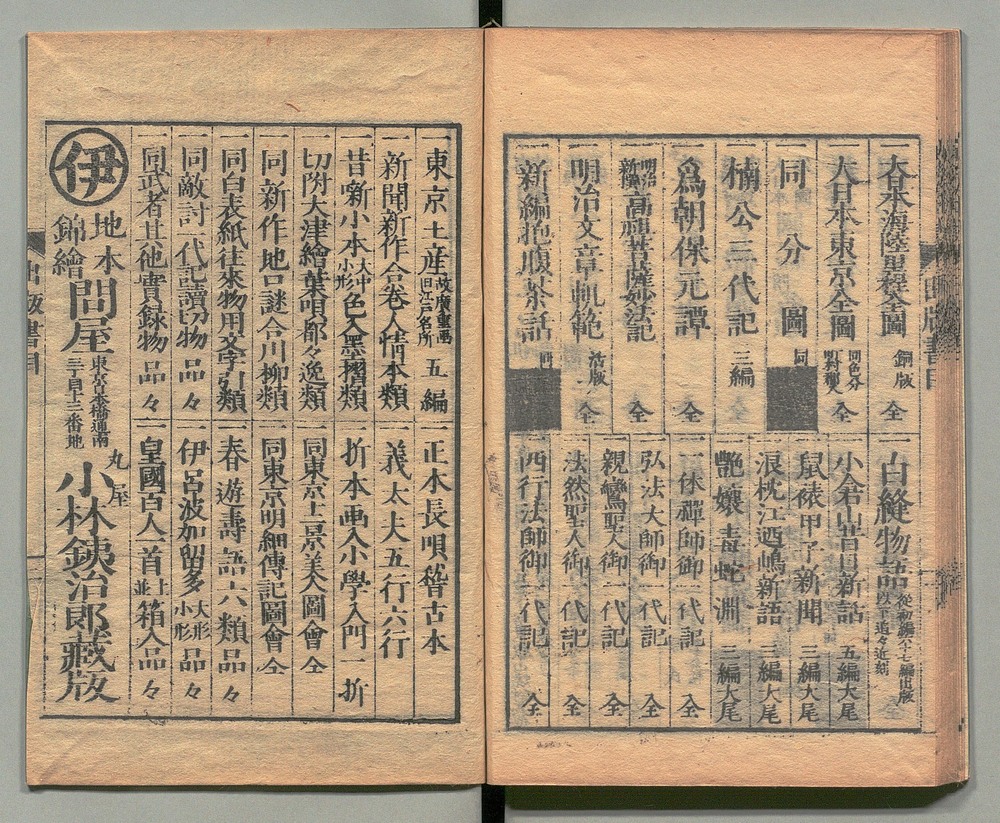 一大日本海陸里程全圖 銅版 全
一大日本東京全圖 同色分 全
一同 分 圖 同
一楠公三代記 三編
一爲朝保元譚 全
一高祖菩薩妙法記 全
一明治文章軌範 活版 全
一新編抱腹茶話
白縫物語 從初編六十七編出版 以下追々近刻
小倉山昔日新話 五編大尾
鼠裱甲子新聞 三編大尾
浪枕江迺嶋新語 三編大尾
艷孃毒蛇淵 三編大尾
一休禪師御一代記 全
弘法大師御一代記 全
親鸞聖人御一代記 全
法然聖人御一代記 全
西行法師御一代記 全
一東京土産 故廣重画 旧江戸名所 五編
一新聞新作合巻人情本類
一昔噺小本 大中小形 色入墨摺類
一切附大津繪葉唄都々逸類
一同新作地口謎合川柳類
一同白表紙往來物用文字引類
一同敵討一代記讀切物品々
一同武者其他實録物品々
一正本長唄稽古本
一義太夫五行六行
一折本画入小學入門一折
一同東京十二景美人圖會 全
一同東京明細傳記圖會 全
一春遊壽語六類品々
一伊呂波加留多 大形小形 品々
一皇國百人一首 並上 箱入品々
伊
地本
錦繪
問屋
東京日本橋通南
三丁目十三番地
丸屋
小林鉄治郎藏版
出版書目